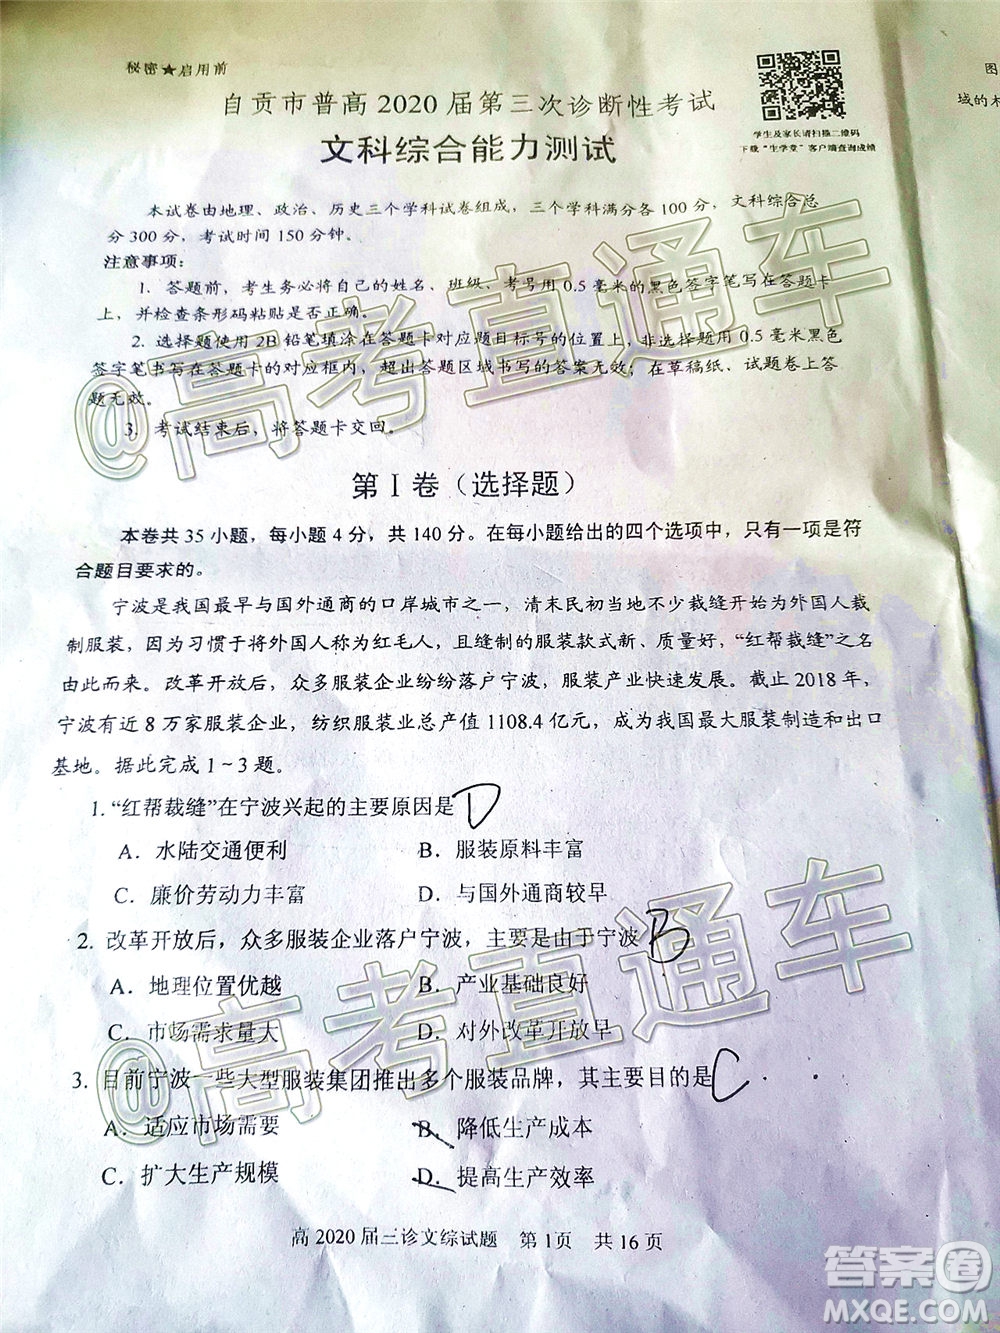 秘密★启用前
自贡市普高2020届第三次诊断性考试
文科综合能力测试
学生及家长请扫描二维码
下载“生学堂”客户端查询成绩
图
域的木
本试卷由地理、政治、历史三个学科试卷组成，三个学科满分各100分，文科综合总
分300分，考试时间150分钟。
注意事项：
1. 答题前，考生务必将自己的姓名、班级、考号用0.5毫米的黑色签字笔写在答题卡
上，并检查条形码粘贴是否正确。
2. 选择题使用2B铅笔填涂在答题卡对应题目标号的位置上，非选择题用0.5毫米黑色
签字笔书写在答题卡的对应框内，超出答题区域书写的答案无效；在草稿纸、试题卷上答
题无效。
3. 考试结束后，将答题卡交回。
第Ⅰ卷（选择题）
本卷共35小题，每小题4分，共140分。在每小题给出的四个选项中，只有一项是符
合题目要求的。
宁波是我国最早与国外通商的口岸城市之一，清末民初当地不少裁缝开始为外国人裁
制服装，因为习惯于将外国人称为红毛人，且缝制的服装款式新、质量好，“红帮裁缝”之名
由此而来。改革开放后，众多服装企业纷纷落户宁波，服装产业快速发展。截止2018年，
宁波有近8万家服装企业，纺织服装业总产值1108.4亿元，成为我国最大服装制造和出口
基地。据此完成1～3题。
1. “红帮裁缝”在宁波兴起的主要原因是 D
A. 水陆交通便利 B. 服装原料丰富
C. 廉价劳动力丰富 D. 与国外通商较早
2. 改革开放后，众多服装企业落户宁波，主要是由于宁波 B
A. 地理位置优越 B. 产业基础良好
C. 市场需求量大 D. 对外改革开放早
3. 目前宁波一些大型服装集团推出多个服装品牌，其主要目的是 C
A. 适应市场需要 B. 降低生产成本
C. 扩大生产规模 D. 提高生产效率
高2020届三诊文综试题 第1页 共16页
@高考直通车
@高考直通车
答案圈
MXQE.COM